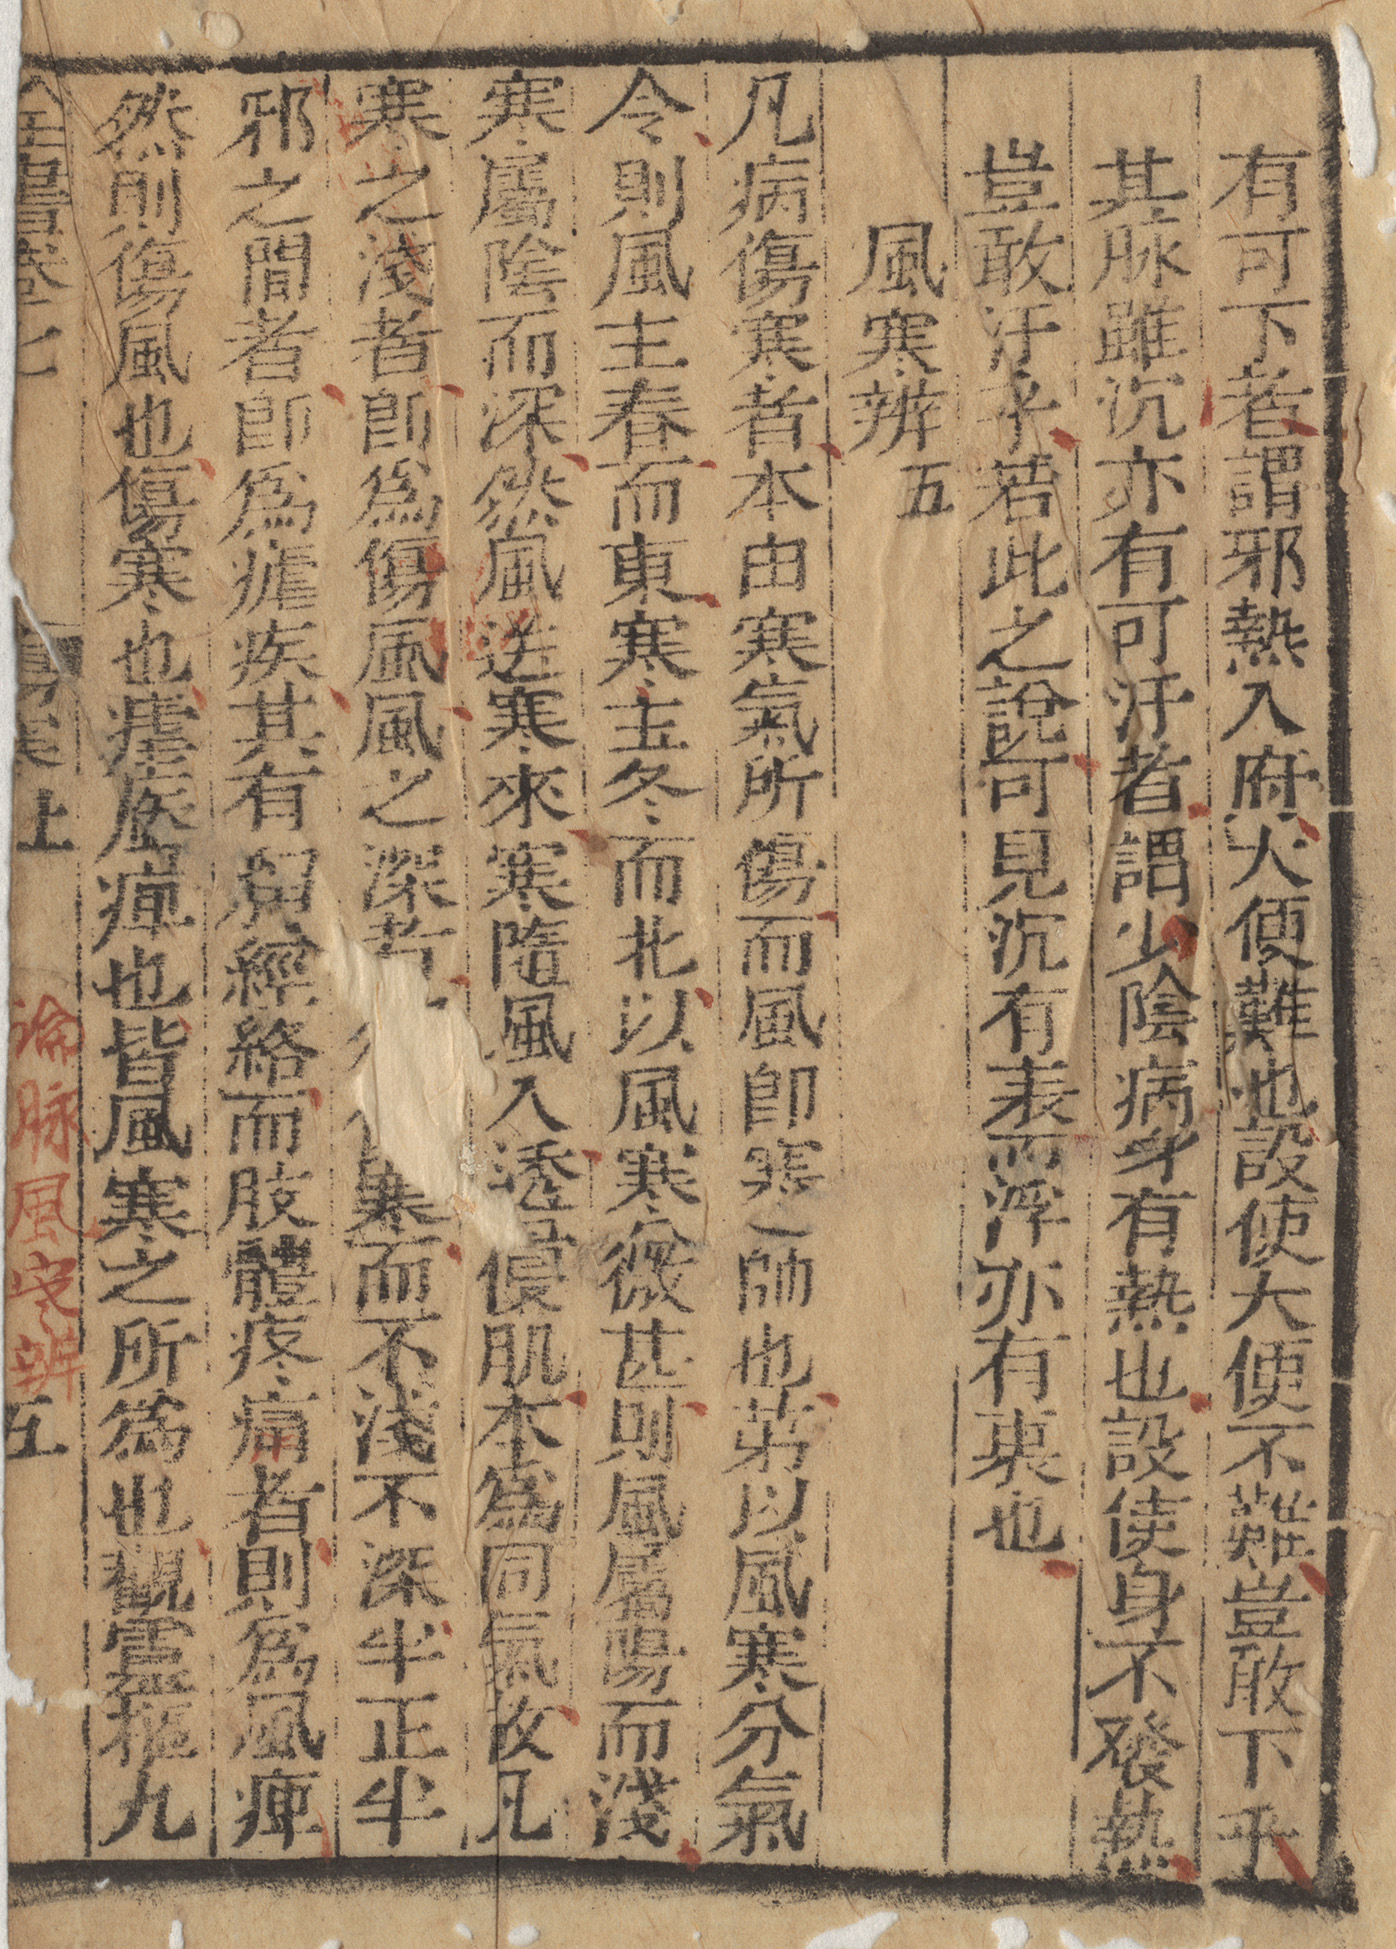 有可下者謂邪熱入府大便難也設使大便不難豈敢下乎
其脉雖沉亦有可汗者謂少陰病身有熱也設使身不發熱
豈敢汗乎若此之說可見沉有表而浮亦有裏也
風寒辨五
凡病傷寒者本由寒氣所傷而風即寒之帥也第以風寒分氣
令則風主春而東寒主冬而北以風寒微甚則風屬陽而淺
寒屬陰而深然風送寒來寒隨風入透侵肌本為同氣故凡
寒之淺者即為傷風風之深者寒而不淺不深半正半
邪之間者即為瘧疾其有留經絡而肢體疼痛者則為風痺
然則傷風也傷寒也瘧疾痺也皆風寒之所為也觀靈樞九
全書卷七
上
論脉風寒辨
五